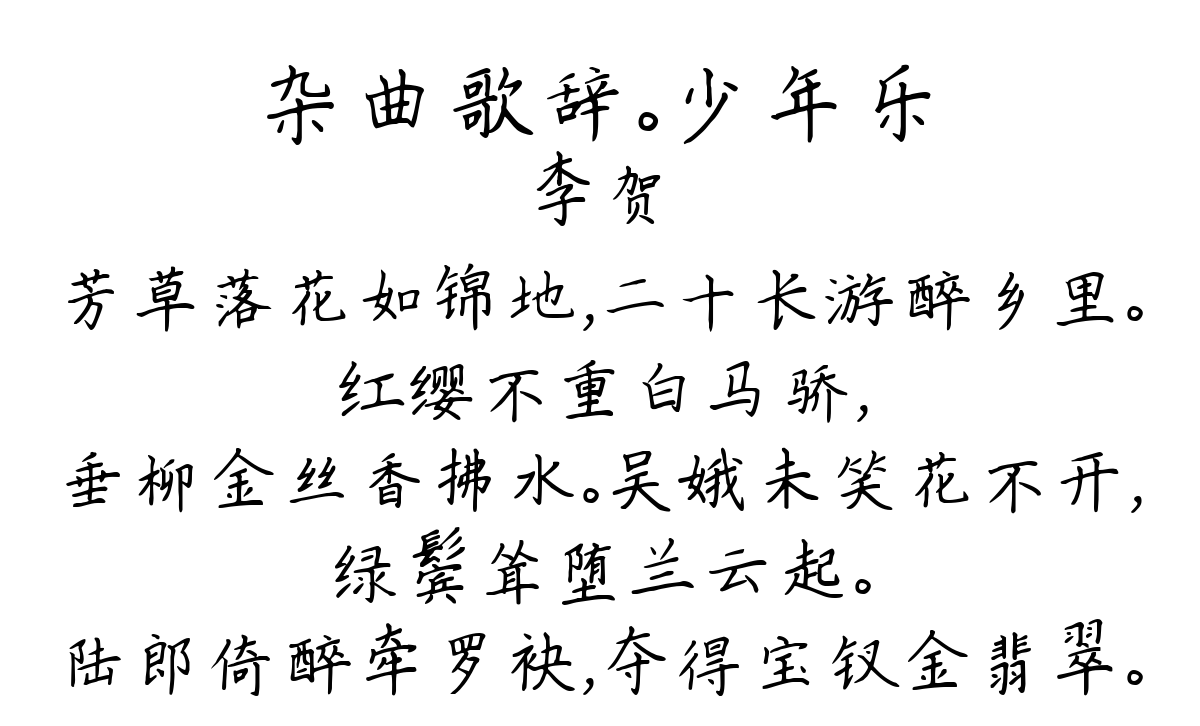 杂曲歌辞。少年乐
李贺
芳草落花如锦地,二十长游醉乡里。
红缨不重白马骄,
垂柳金丝香拂水。吴娥未笑花不开,
绿鬓耸堕兰云起。
陆郎倚醉牵罗袂,夺得宝钗金翡翠。